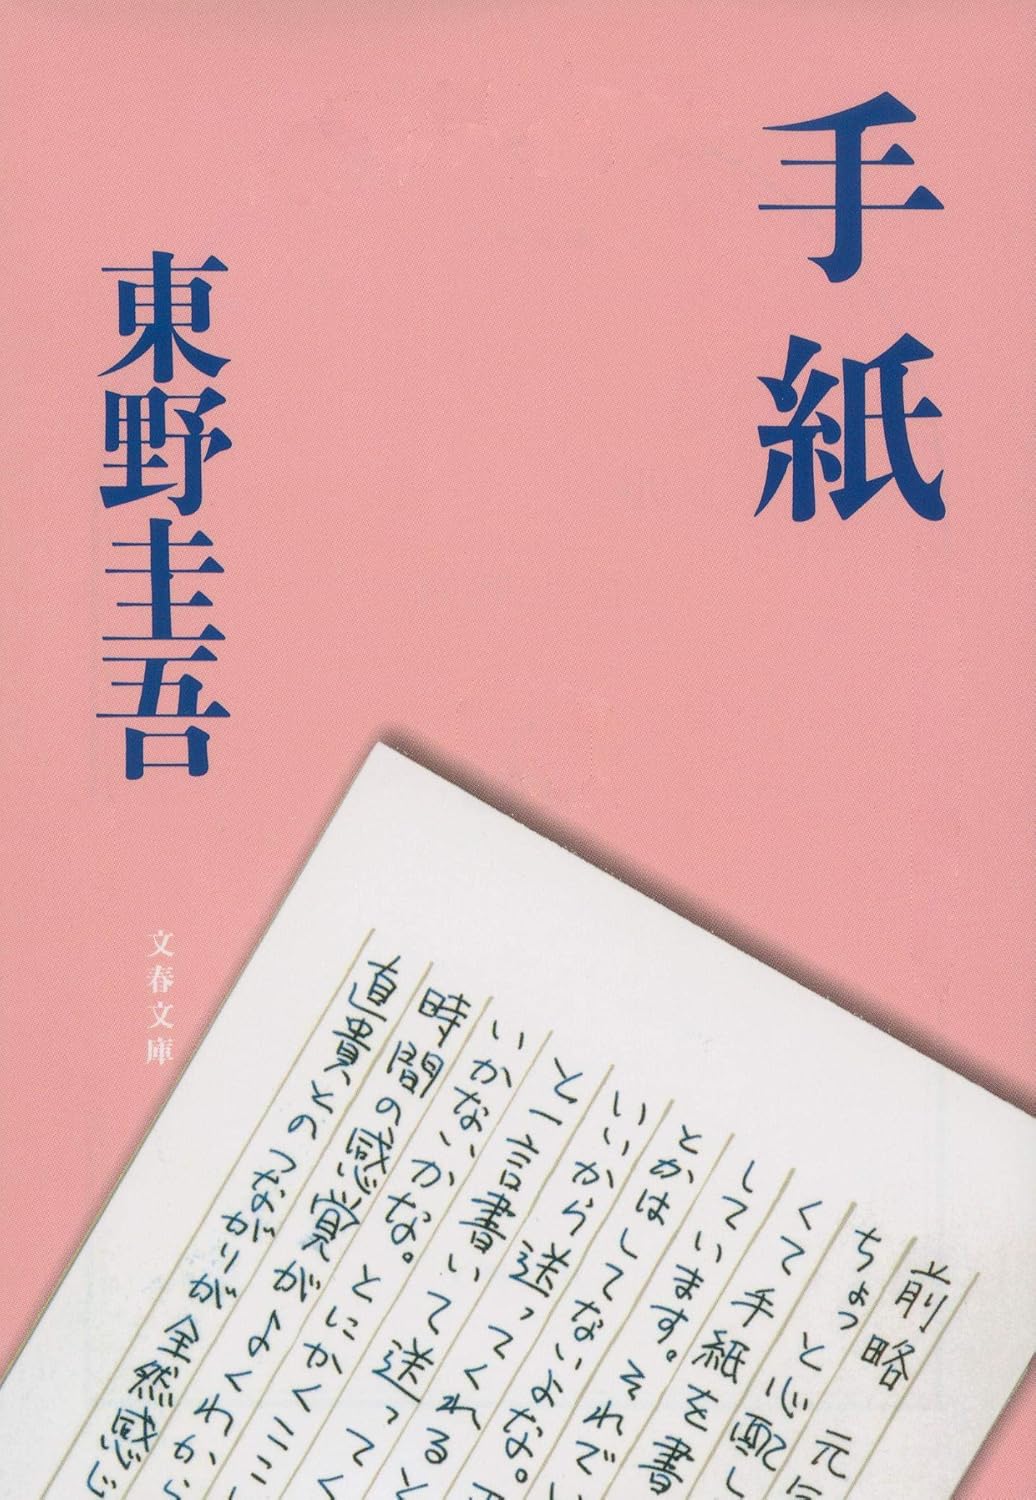 手紙
東野圭吾
文春文庫
前略 元
ちょっと心配し
くて手紙を書
しています。それで
とかはしてないよな。
いいから送ってくれると
と一言書いて送って
いかないかな。とにかくここ
時間の感覚がよくわから
直貴とのつながりが全然感じ